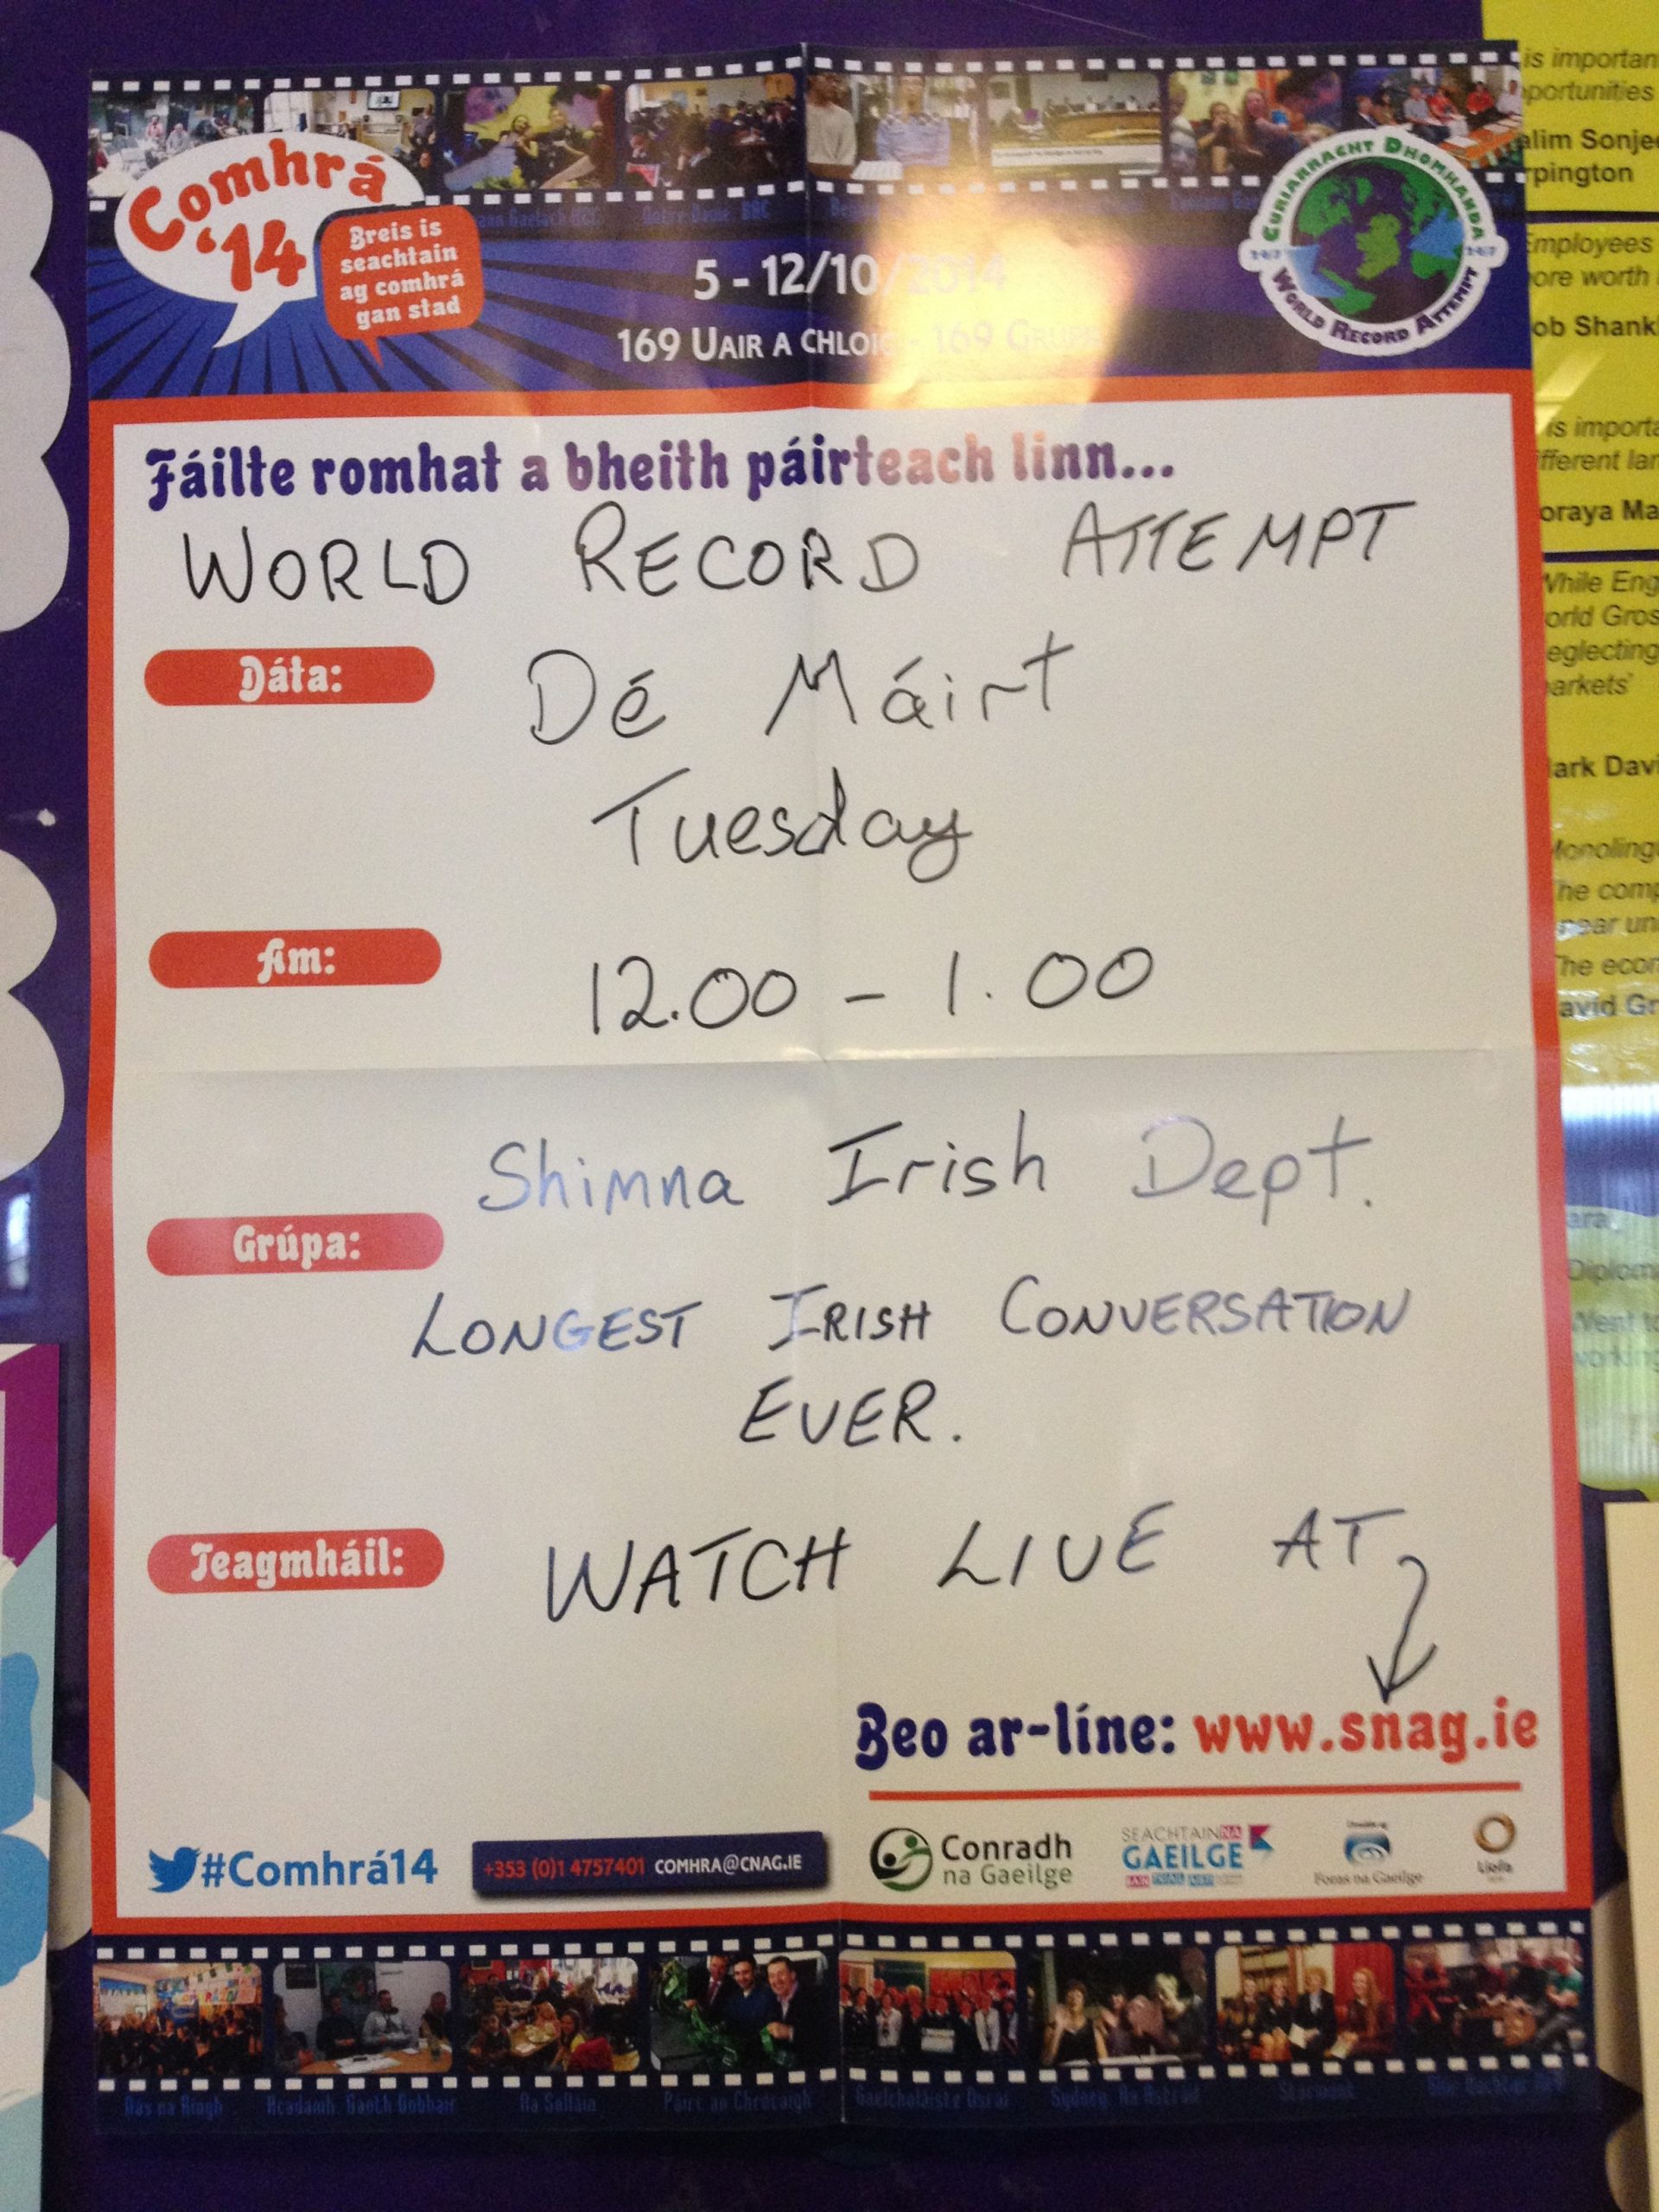 Comhrá
'14
Breis is
seachtain
ag comhrá
gan stad
5 - 12/10/2014
169 UAIR A CHLOIG - 169 GRÚPA
CURIARRACHT DHOMHANDA
24/7 24/7
WORLD RECORD ATTEMPT
Fáilte romhat a bheith páirteach linn...
WORLD RECORD ATTEMPT
Dáta: Dé Máirt
Tuesday
Am: 12.00 - 1.00
Shimna Irish Dept.
Grúpa:
LONGEST IRISH CONVERSATION
EVER.
Teagmháil: WATCH LIVE AT
Beo ar-líne: www.snag.ie
#Comhrá14
+353 (0)1 4757401 COMHRA@CNAG.IE
Conradh
na Gaeilge
SEACHTAIN NA
GAEILGE
Foras na Gaeilge
Páirc an Chrócaigh
Stormont
is importan
portunities
alim Sonje
rpington
Employees
ore worth
ob Shank
is importa
fferent lan
oraya Ma
While Eng
orld Gros
eglecting
arkets'
ark Davi
Monoling
The comp
near un
The econ
avid Gr
Diplom
Went to
working